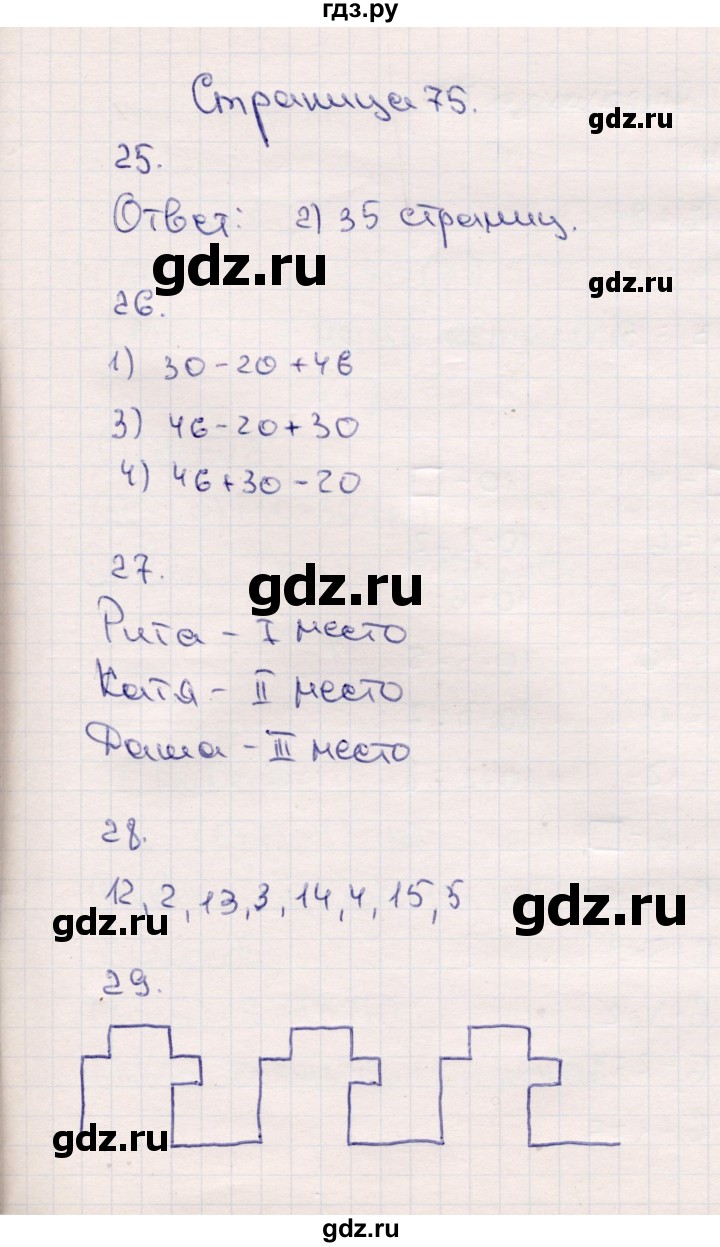 гдз.ру
Страница 75.
gdz.ru
25.
Ответ: 2) 35 страниц.
gdz.ru
gdz.ru
26.
1) 30-20+46
3) 46-20+30
4) 46+30-20
27.
gdz.ru
Рита - I место
Катя - II место
Даша - III место
28.
12, 2, 13, 3, 14, 4, 15, 5
gdz.ru
gdz.ru
29.
gdz.ru
gdz.ru